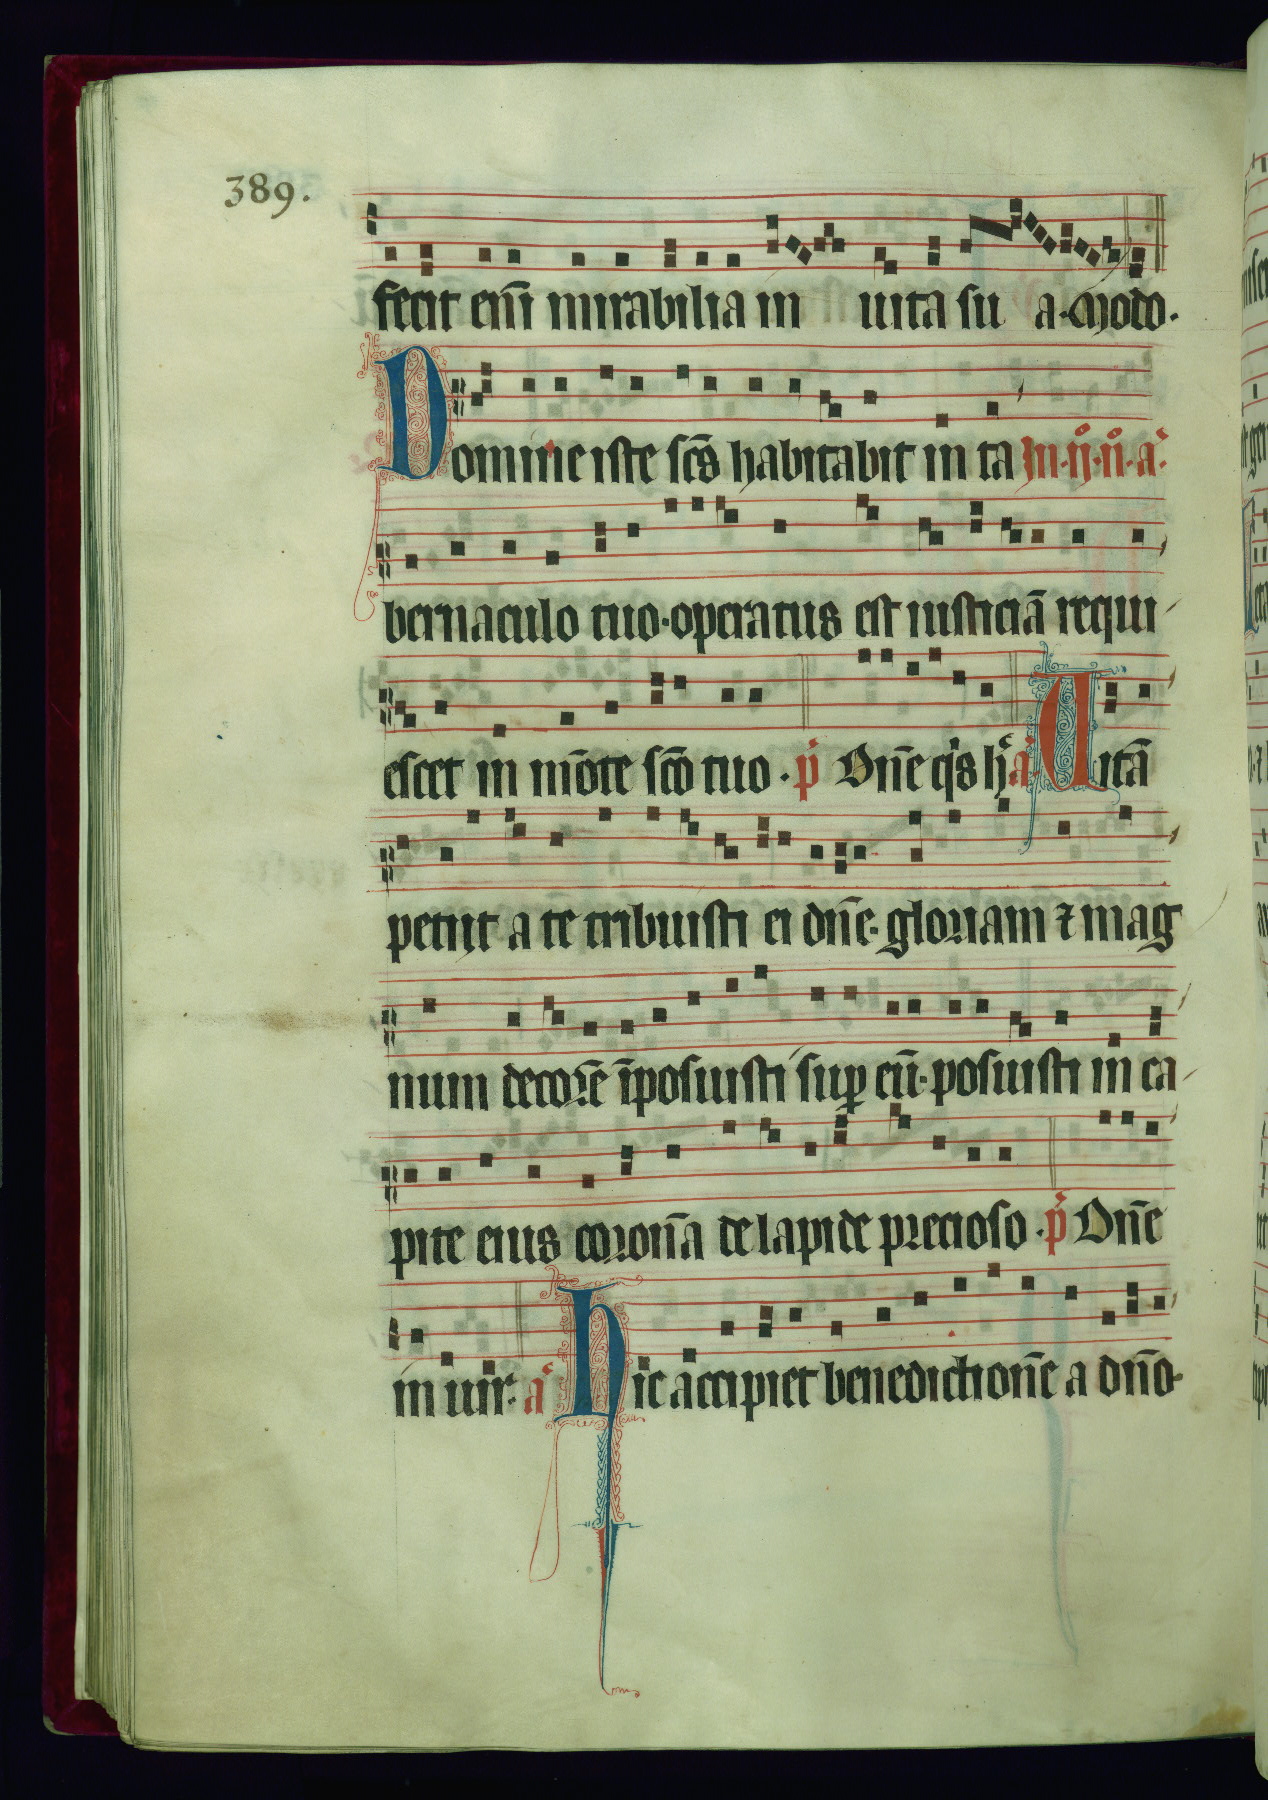 389.
fecit eni̅ mirabilia in uita su a. Modo.
Domine iste sc̅s habitabit in ta In. ij. n̊. a̅.
bernaculo tuo. operatus est iusticia̅ requi
escet in mo̅te sc̅o tuo. p̅ Dn̅e q's h a̅ Uita̅
petiit a te tribuisti ei dn̅e. gloriam ⁊ mag
num decore̅ i̅posuisti sup̲ eu̅. posuisti in ca
pite eius coron̅a de lapide precioso. p̅ Dn̅e
in uir. a̅ Hic accipiet benediction̅e a dn̅o.